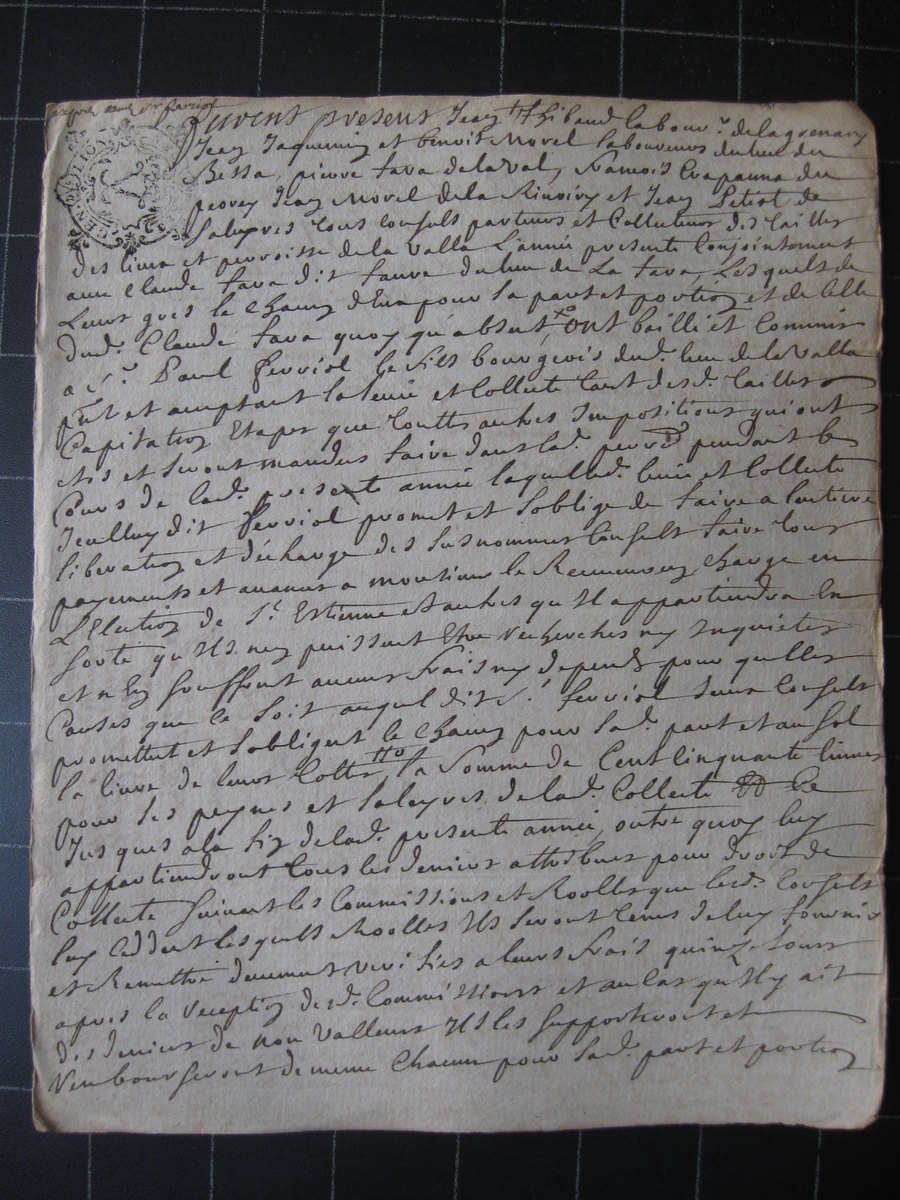 furent present Jean thibaud labour.r de la grenary
Jean Jaquemin et benoit Morel laboureurs du lieu du
Bessa, pierre fara de la val, francois Crapanna du
Jean Morel de la Riviry et Jean Petiot de
Saleyres tous Consuls parteurs et Collecteurs des tailles
des lieux et perroisse de la Valla L'année presente Conjointement
avec Claude fara dit faure du lieu de La fara, Lesquels de
Leurs grés le Chacun d'Eux pour sa part et portion et de Celle
dud. Claude fara quoy qu'absent, ont bailli et Commis
a s.r Paul ferriol le fils bourgeois dud. lieu de la Valla
pnt et acceptant la levée et Collecte tant desd. tailles
Capitation Etapes que touttes autres Impositions qui ont
etés et seront mandées faire dans lad. perr.e pendant le
Cours de lad. presente année laquelled. levée et Collecte
Icelluy dit ferriol promet et soblige de faire a l'entiere
liberation et décharge des susnommes Consuls faire tous
payements et avances a messieurs le Receveurs en charge en
L'Election de St Estienne et autres qu'Il appartiendra En
sorte qu'Ils ney puissent Etre recherches ny Inquietés
et n'En souffrent aucuns frais ny depends pour quelles
Causes que ce soit auquel dit S.r ferriol Iceux Consuls
promettent et sobligent le Chacun pour sad. part et au sol
la livre de leurs Cottes la somme de Cent cinquante livres
pour ses peynes et saleyres de lad. Collecte Ce
Jusques a la fin de lad. presente année, outre quoy luy
appartiendront tous les deniers attribues pour droit de
Collecte suivant les Commissions et Roolles que lesd. Consuls
luy Cedderet lesquels Roolles Ils seront tenus de luy fournir
et Remettre deuement veriffies a leurs frais quinze Jours
apres la reception desd. Commissions et au Cas qu'Il y ait
des deniers de non valleurs Ils les supporteront et
Rembourseront de meme Chacun pour sad. part et portion